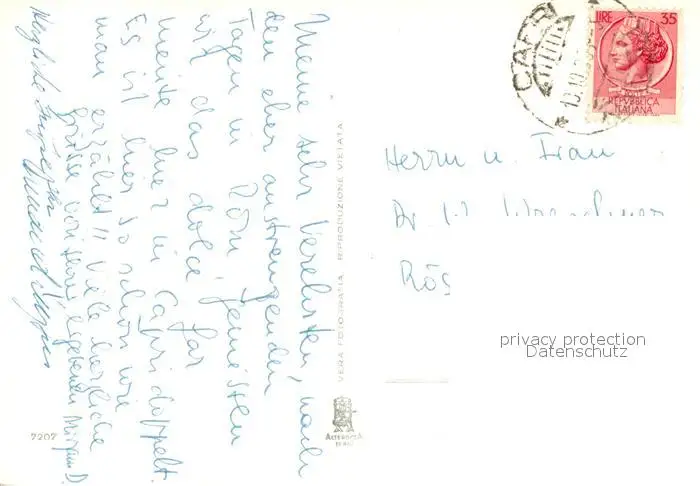 Meine sehr Verehrten, nach
den eher anstrengenden
Tagen in Rom geniessen
wir das dolce far
niente hier in Capri doppelt.
Es ist hier so schön wie
man erzählt!! Viele herzliche
Grüsse von Ihrem ergebenen
Herzliche
VERA FOTOGRAFIA RIPRODUZIONE VIETATA
7207
ALTEROCCA
TERNI
CAPRI
LIRE 35
POSTE
REPVBBLICA
ITALIANA
Herrn u. Frau
Dr. W.
Rös
privacy protection
Datenschutz